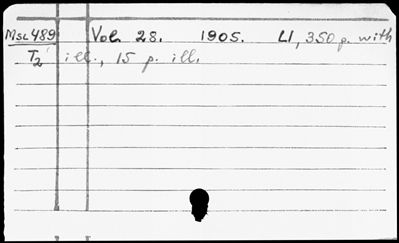 Msl489 Vol. 28. 1905. LI, 350 p. with
T2 ill., 15 p. ill.